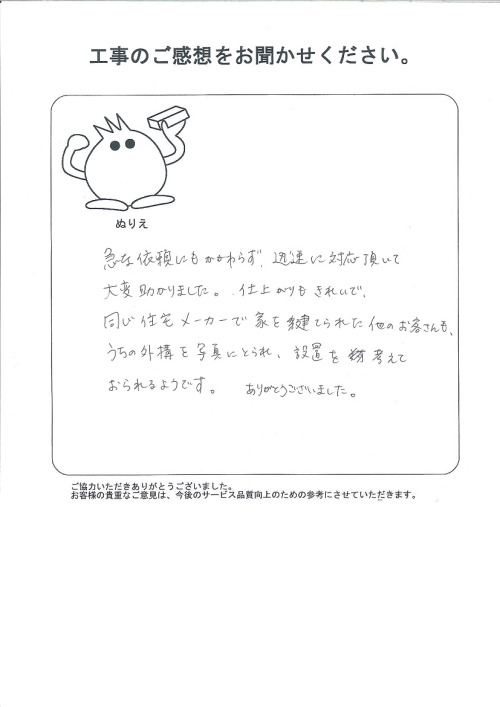 工事のご感想をお聞かせください。
ぬりえ
急な依頼にもかかわらず、迅速に対応頂いて
大変助かりました。仕上がりもきれいで、
同じ住宅メーカーで家を建てられた他のお客さんも、
うちの外構を写真にとられ、設置を考えて
おられるようです。 ありがとうございました。
ご協力いただきありがとうございました。
お客様の貴重なご意見は、今後のサービス品質向上のための参考にさせていただきます。